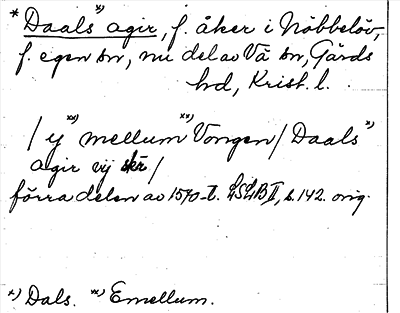 * Daals x) agir, f. åker i Nöbbelöv,
f. egen sn, nu del av Vä sn, Gärds
hd, Krist. l.
/ ij xx) mellum xx) Vongen / Daals x)
agir vij skr /
förra delen av 1570-t. LSLB II, s. 142. orig.
x) Dals. xx) Emellum.